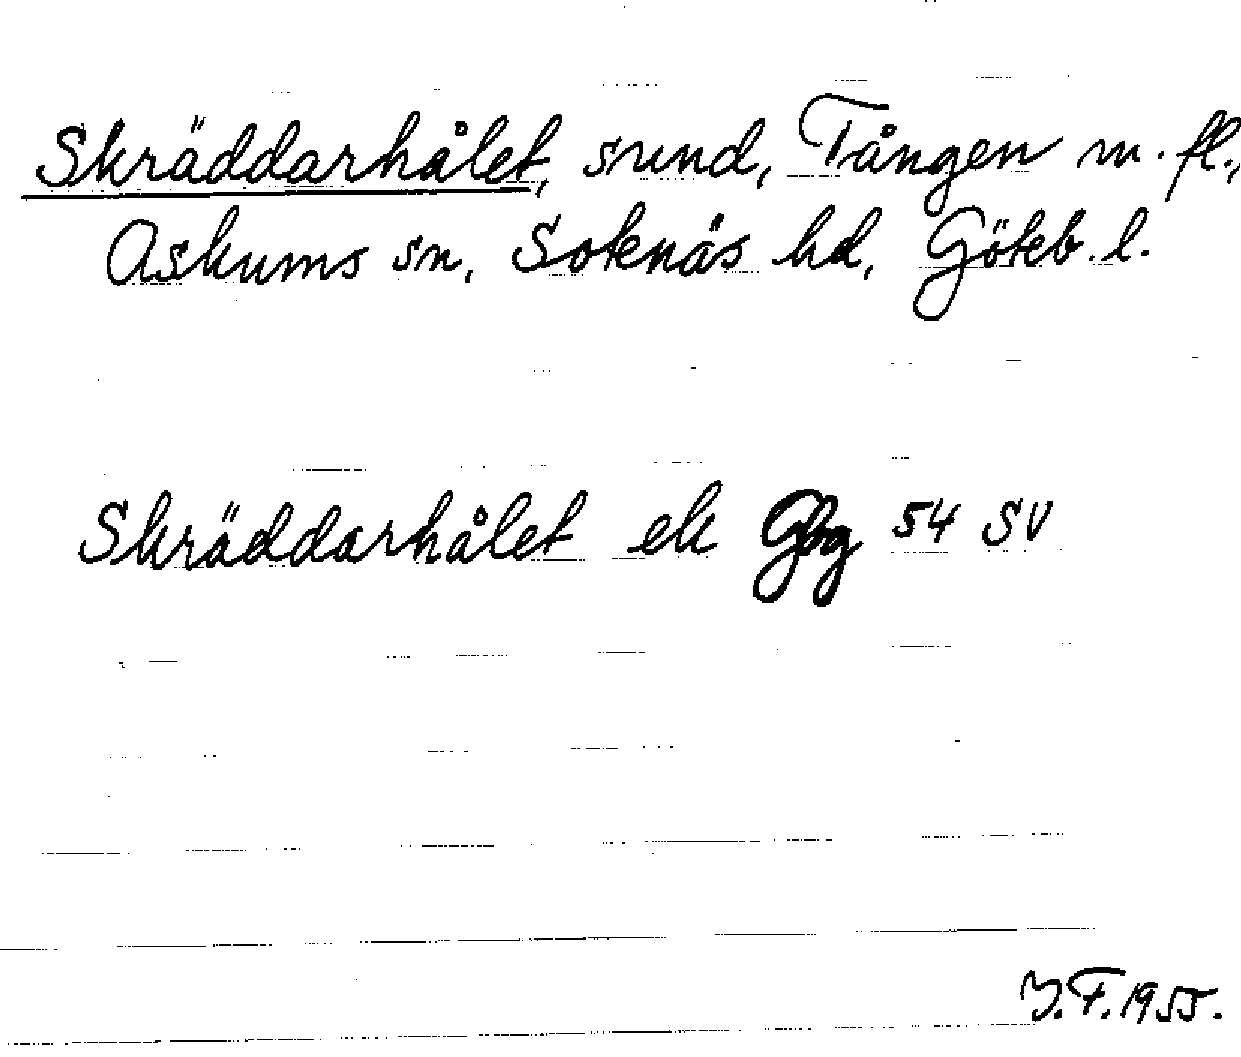 Skräddarhålet, sund, Tången m. fl.,
Askums sn, Sotenäs hd, Göteb. l.
Skräddarhålet ek Gbg 54 SV
Y.F. 1955.